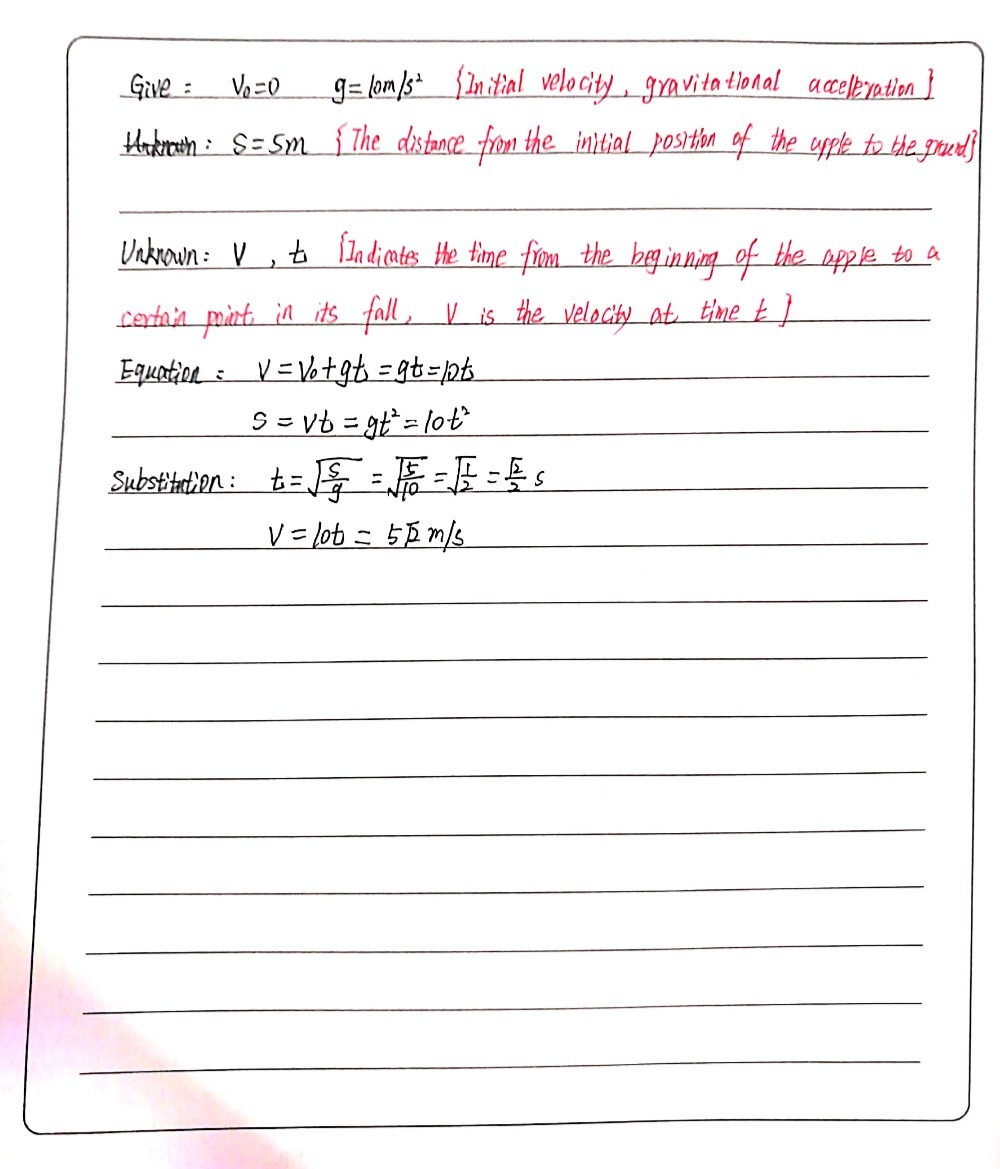 Give: V₀=0 g=10m/s² {Initial velocity, gravitational acceleration}
Unknown: S=5m {The distance from the initial position of the apple to the ground}
Unknown: V, t {Indicates the time from the beginning of the apple to a
certain point in its fall, V is the velocity at time t}
Equation: V=V₀+gt=gt=10t
S=Vt=gt²=10t²
Substitution: t=√(S/g)=√(5/10)=√(1/2)=√2/2 s
V=10t=5√2 m/s